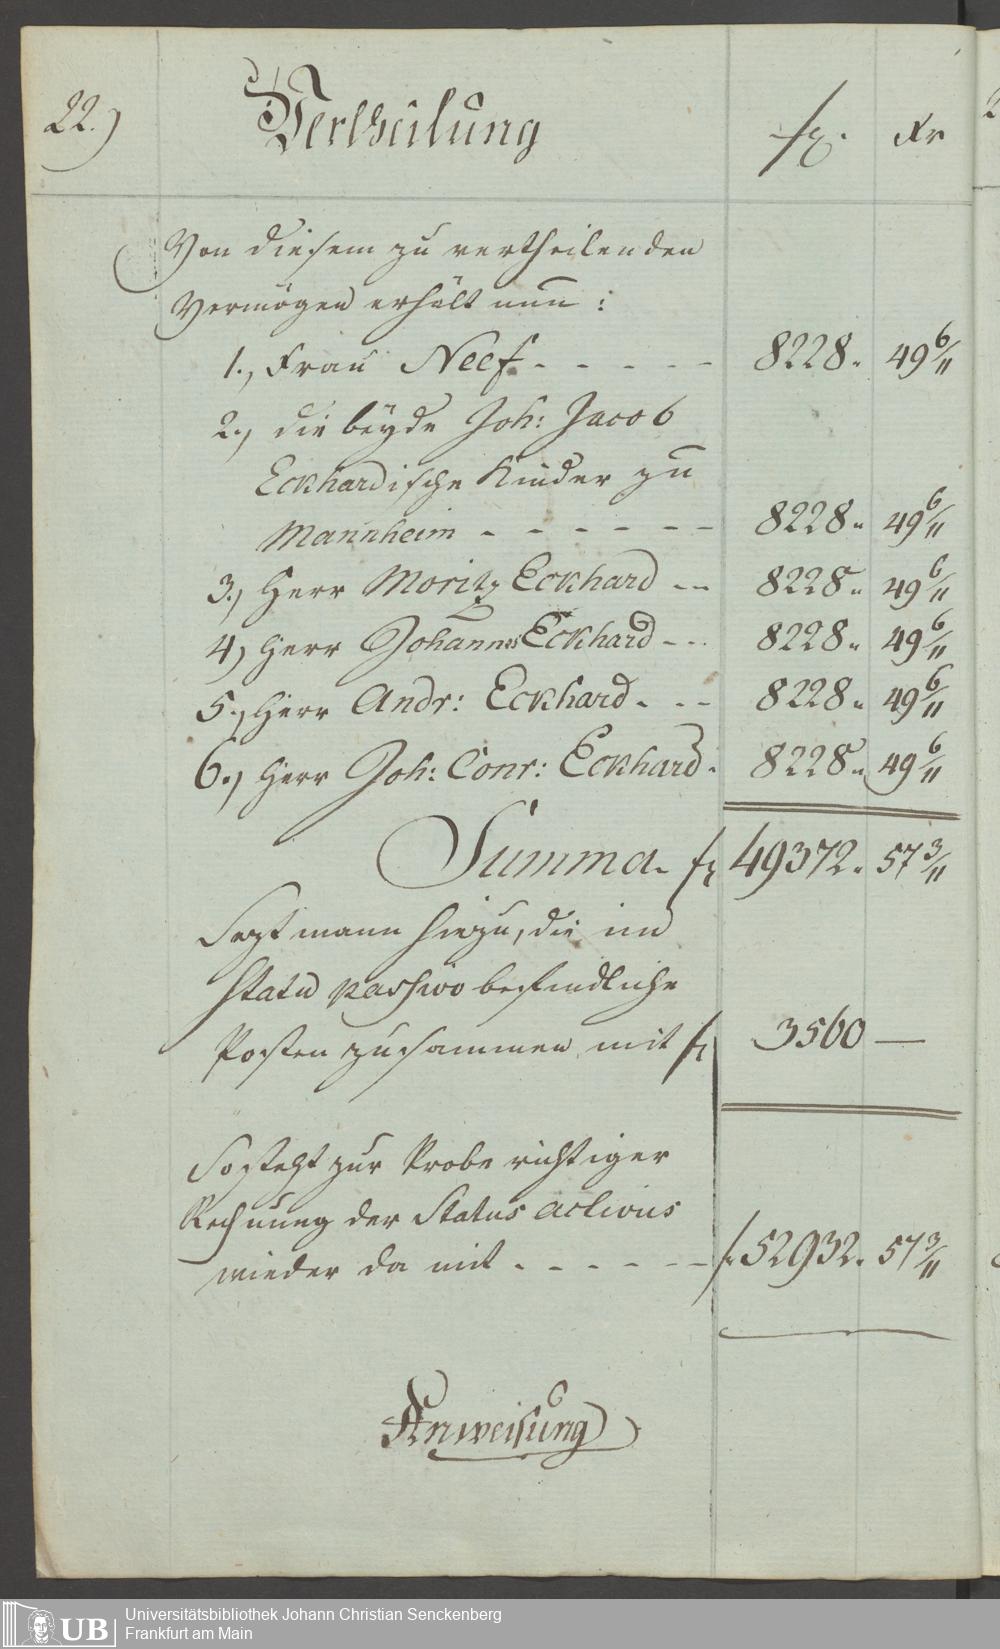 22.) Vertheilung fl. Kr
Von diesem zu vertheilenden
Vermögen erhält nun:
1., Frau Neef - - - - - 8228. 49 6/11
2., die beyde Joh: Jacob
Eckhardische Kinder zu
Mannheim - - - - - - 8228. 49 6/11
3., Herr Moritz Eckhard - - 8228. 49 6/11
4., Herr Johannes Eckhard - - 8228. 49 6/11
5., Herr Andr: Eckhard - - - 8228. 49 6/11
6., Herr Joh: Conr: Eckhard - 8228. 49 6/11
Summa. fl 49372. 57 3/11
Sezt mann hiezu, die im
Statu passivo befindliche
Posten zusammen mit fl 3560 —
So steht zur Probe richtiger
Rechnung der Status activus
wieder da mit - - - - - - fl 52932. 57 3/11
Anweisung
UB
Universitätsbibliothek Johann Christian Senckenberg
Frankfurt am Main